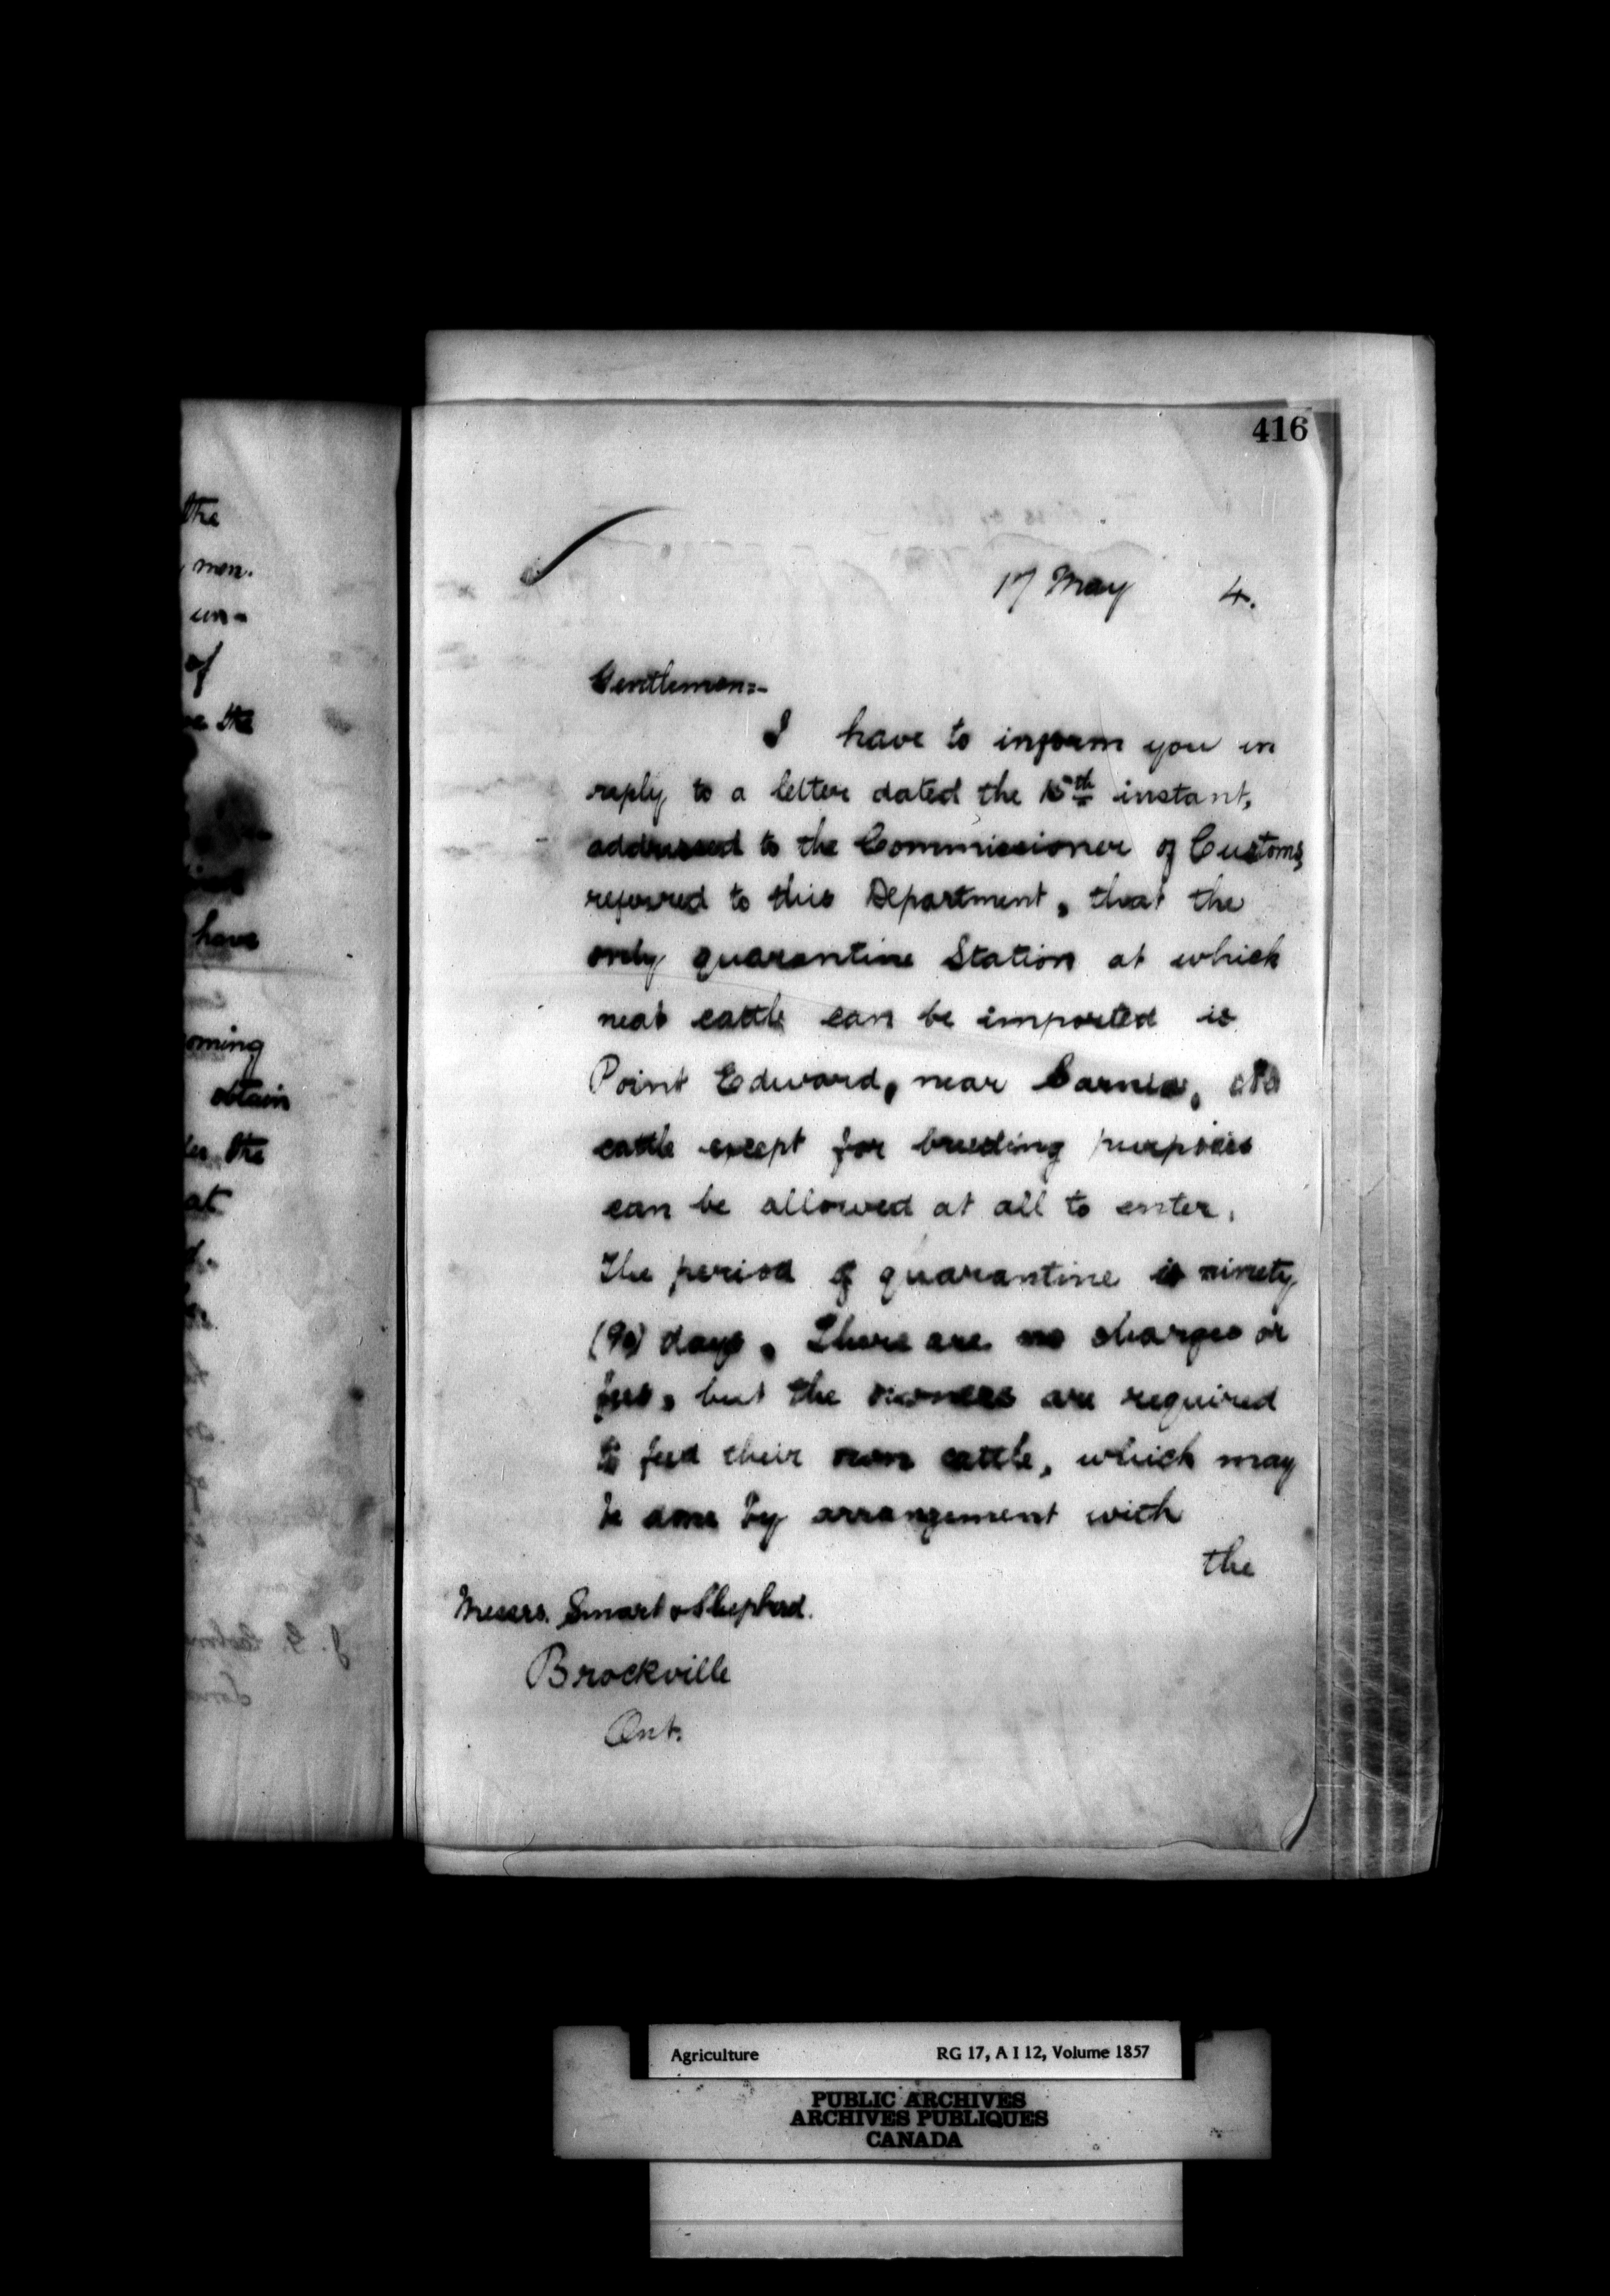 416
17 May 4.
Gentlemen:-
I have to inform you in
reply to a letter dated the 15th instant,
addressed to the Commissioner of Customs,
referred to this Department, that the
only quarantine Station at which
neat cattle can be imported is
Point Edward, near Sarnia,
cattle except for breeding purposes
can be allowed at all to enter.
The period of quarantine is ninety
(90) days. There are no charges or
fees, but the owners are required
to feed their own cattle, which may
be done by arrangement with
the
Messrs. Smart & Shepherd.
Brockville
Ont.
the
men.
un-
of
the
have
oming
obtain
the
at
Agriculture RG 17, A I 12, Volume 1857
PUBLIC ARCHIVES
ARCHIVES PUBLIQUES
CANADA